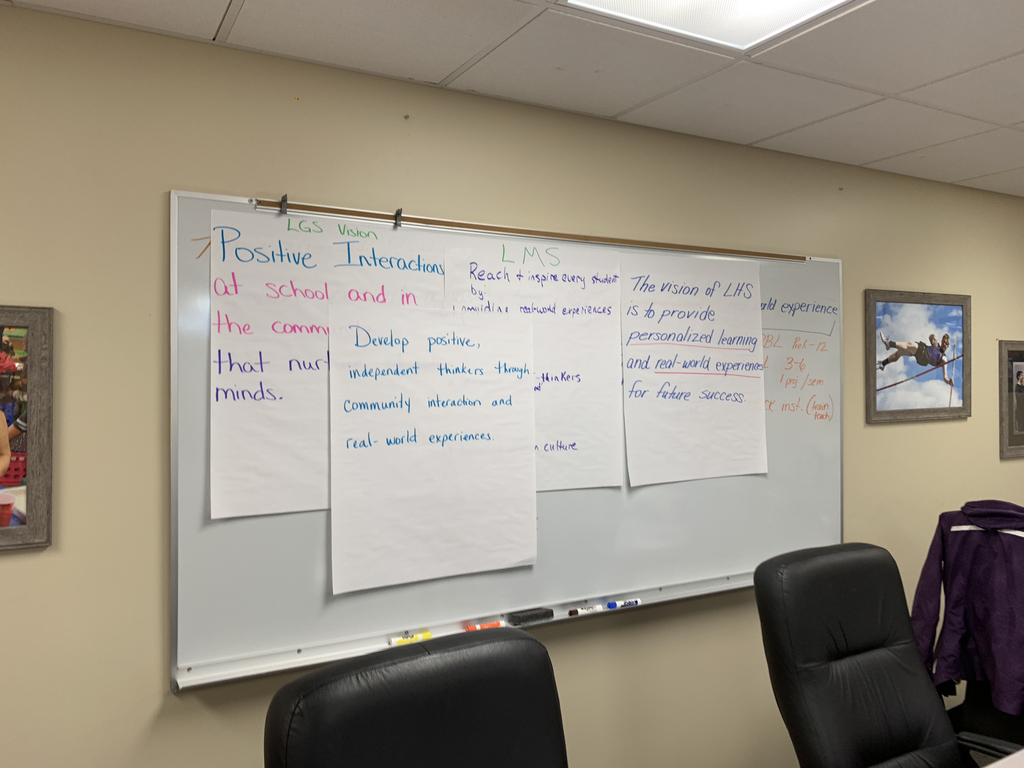 LGS Vision
Positive Interactions
at school and in
the comm
that nur
minds.
Develop positive,
independent thinkers through
community interaction and
real-world experiences.
LMS
Reach + inspire every student
by:
providing real-world experiences
thinkers
culture
The vision of LHS
is to provide
personalized learning
and real-world experiences
for future success.
rld experience
BL PreK-12
3-6
1 proj/sem
ck inst. (train
teach)